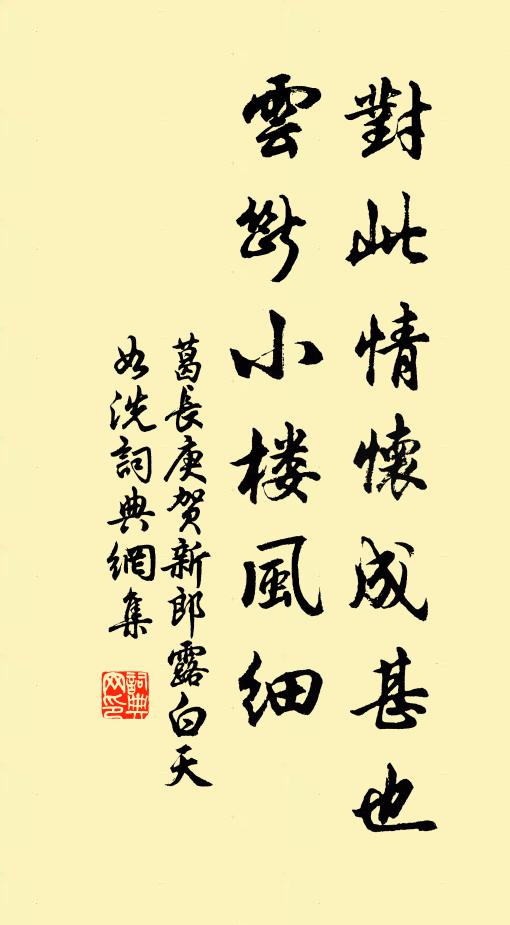 對此情懷成甚也
雲斷小楼風细
葛長庚贺新郎露白天
如洗詞典網集
詞典
网印